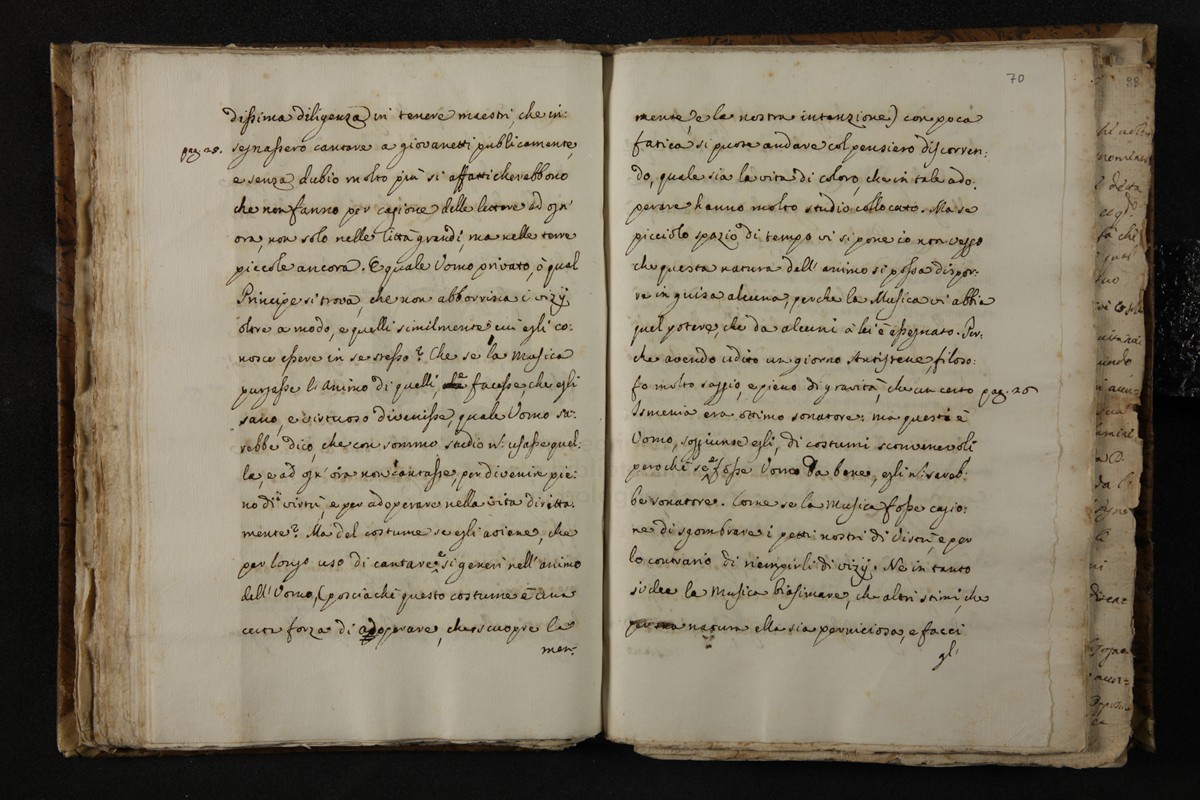 dissima diligenza in tenere maestri, che in:
pag. 28. segnassero cantare a giovanetti publicamente,
e senza dubio molto più si affatticherebbono
che non fanno per cagione delle lettere ad ogn'
ora, non solo nelle Città grandi, ma nelle terre
piccole ancora. E quale Uomo privato, ò qual
Principe si trova, che non abborrisca i vizÿ
oltre a modo, e quelli similmente cui egli co:
nosce essere in se stesso? Che se la Musica
purgasse l'Animo di quelli facesse che egli
sano, e virtuoso divenisse, quale Uomo sa:
rebbe dico, che con sommo studio nõ usasse quel:
la, e ad ogn'ora non cantasse, per divenir pie:
no di virtù, e per adoperare nella vita diretta:
mente? Ma del costume se egli aviene, che
per longo uso di cantare si generi nell'animo
dell'Uomo, (posciaché questo costume è una
certa forza di adoperare, che scuopre la
men:
70
mente, e la nostra intenzione) con poca
fatica si puote andare col pensiero discorren:
do, quale sia la vita di coloro, che in tale ado:
perare hanno molto studio collocato. Ma se
picciolo spazio di tempo vi si pone io non veggo
che questa natura dell'animo si possa dispor:
re in guisa alcuna, perche la Musica vi abbia
quel potere, che da alcuni à lei è assegnato. Per:
che avendo udito un giorno Antistene, filoso:
fo molto saggio, e pieno di gravità, che un certo pag. 28
Ismenia era ottimo sonatore: ma questi è
Uomo, soggiunse egli, di costumi sconvenevoli
peroché se fosse Uomo da bene, egli nõ sareb:
be sonatore. Come se la Musica fosse cagio:
ne di sgombrare i petti nostri di Virtù, e per
lo contrario di riempirli di vizÿ. Ne in tanto
si dee la Musica biasimare, che altri stimi, che
per sua natura ella sia perniciosa, e facci
gl'
88